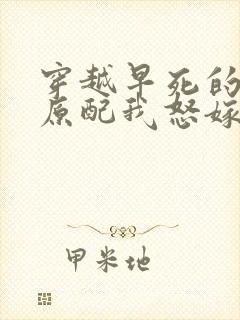 穿越早死的
原配我怒嫁
甲米地